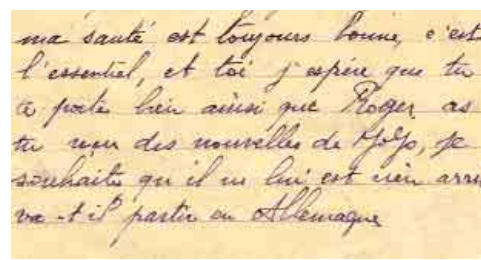 ma santé est toujours bonne, c'est
l'essentiel, et toi j'espère que tu
te porte bien ainsi que Roger, as
tu reçu des nouvelles de Jojo, je
souhaite qu'il ne lui est rien arri
va-t-il partir en Allemagne